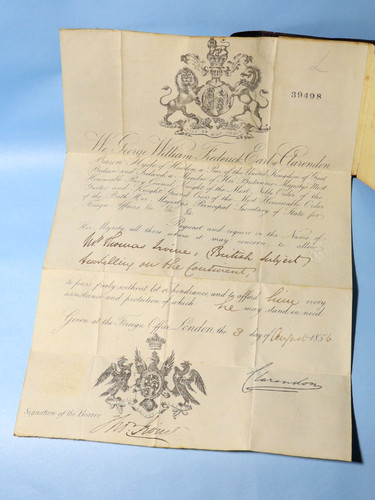 39498
We George William Frederick Earl of Clarendon
Baron Hyde of Hindon a Peer of the United Kingdom of Great
Britain and Ireland a Member of Her Britannic Majesty's Most
Honorable Privy Council Knight of the Most Noble Order of the
Garter and Knight Grand Cross of the Most Honorable Order
of the Bath Her Majesty's Principal Secretary of State for
Foreign Affairs &c &c &c
Request and require in the Name of
Her Majesty all those whom it may concern to allow
Mr. Thomas Irvine, British Subject,
travelling on the Continent,
to pass freely without let or hindrance and to afford him every
assistance and protection of which he may stand in need.
Given at the Foreign Office, London, the 3 day of August 1856
Clarendon
Signature of the Bearer
Thos. Irvine